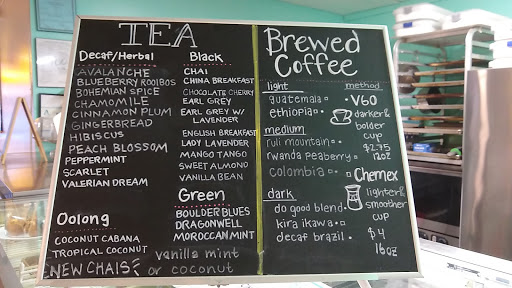 TEA
Decaf/Herbal
AVALANCHE
BLUEBERRY ROOIBOS
BOHEMIAN SPICE
CHAMOMILE
CINNAMON PLUM
GINGERBREAD
HIBISCUS
PEACH BLOSSOM
PEPPERMINT
SCARLET
VALERIAN DREAM
Oolong
COCONUT CABANA
TROPICAL COCONUT
Black
CHAI
CHINA BREAKFAST
CHOCOLATE CHERRY
EARL GREY
EARL GREY W/
LAVENDER
ENGLISH BREAKFAST
LADY LAVENDER
MANGO TANGO
SWEET ALMOND
VANILLA BEAN
Green
BOULDER BLUES
DRAGONWELL
MOROCCAN MINT
NEW CHAIS
vanilla mint
or coconut
Brewed
Coffee
light
guatemala
ethiopia
medium
ruli mountain
rwanda peaberry
colombia
dark
do good blend
kira ikawa
decaf brazil
method
V60
darker &
bolder
cup
$2.75
12oz
Chemex
lighter &
smoother
cup
$4
16oz